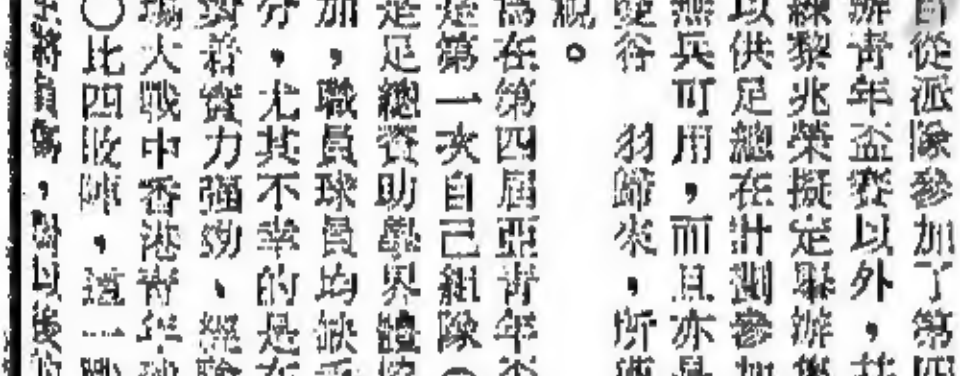 從派隊參加了第四
青年盃賽以外，其
練黎兆榮擬定聯辦
以供足總在計劃參加
無兵可用，而且亦是
羽歸來，所
觀。
為在第四屆亞青年盃
是第一次自己組隊
是足總資助學界體
加，職員球員均缺乏
分，尤其不幸的是在
對着實力强勁、經驗
場大戰中香港青年球
〇比四敗陣，這一戰
將負傷，對以後的